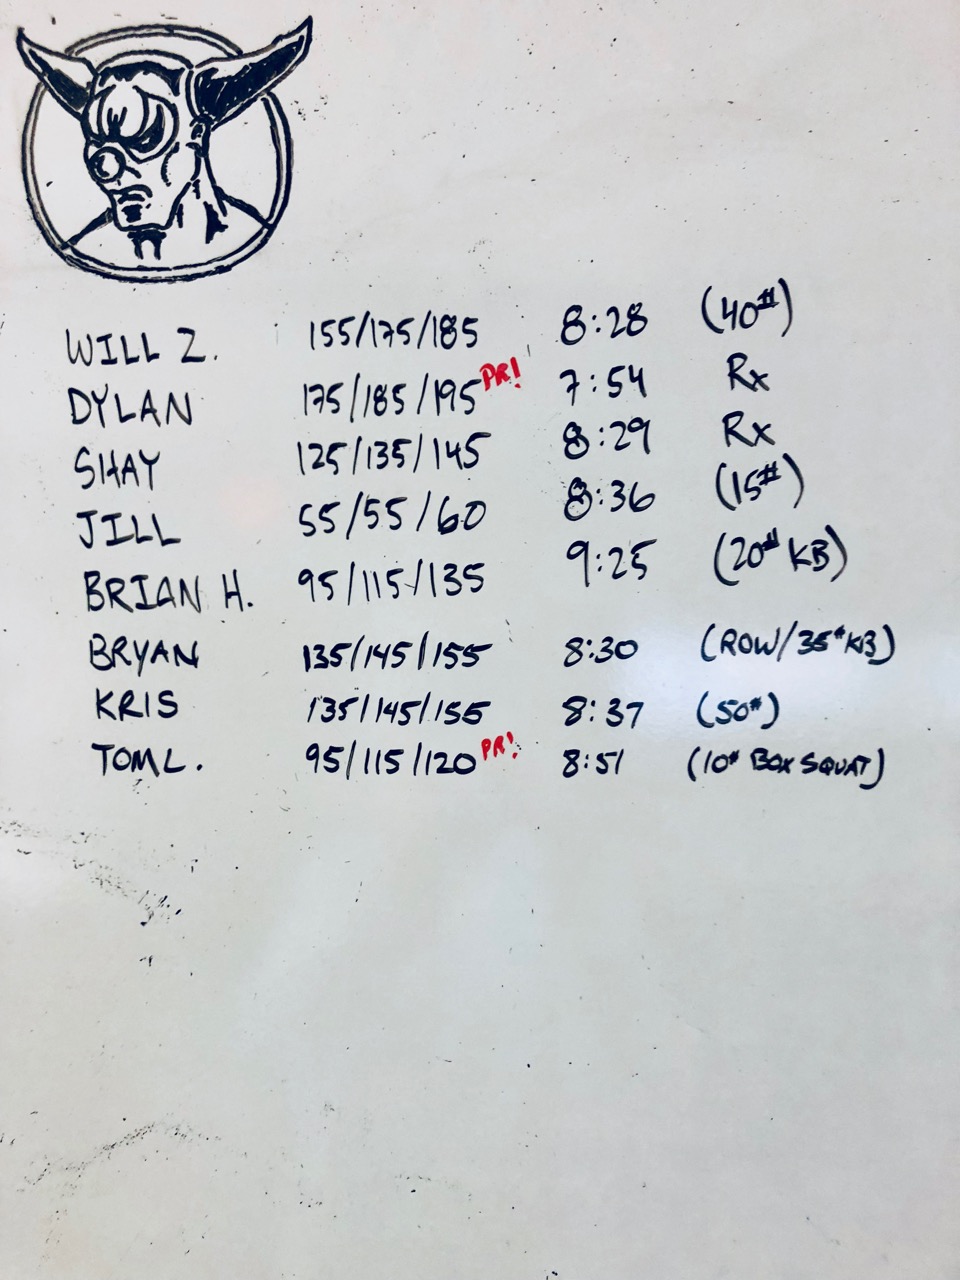 WILL Z. 155/175/185 8:28 (40#)
DYLAN 175/185/195 PR! 7:54 Rx
SHAY 125/135/145 8:29 Rx
JILL 55/55/60 8:36 (15#)
BRIAN H. 95/115/135 9:25 (20# KB)
BRYAN 135/145/155 8:30 (ROW/35# KB)
KRIS 135/145/155 8:37 (50#)
TOM L. 95/115/120 PR! 8:51 (10# BOX SQUAT)